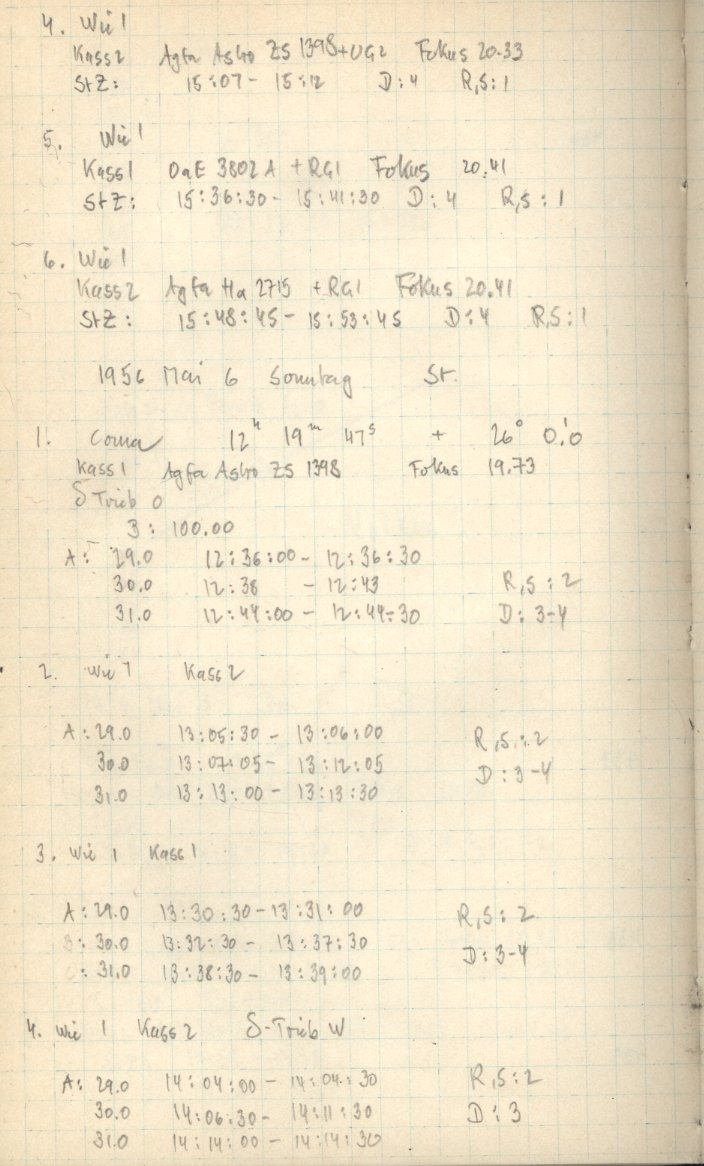 4. Wie 1
Kass 2 Agfa Astro ZS 1398+UG2 Fokus 20.33
StZ: 15:07 - 15:12 D:4 R,S:1
5. Wie 1
Kass 1 OaE 3802A + RG1 Fokus 20.41
StZ: 15:36:30 - 15:41:30 D:4 R,S:1
6. Wie 1
Kass 2 Agfa Ha 2715 + RG1 Fokus 20.41
StZ: 15:48:45 - 15:53:45 D:4 R,S:1
1956 Mai 6 Sonntag St.
1. Coma 12h 19m 47s + 26° 0.'0
Kass 1 Agfa Astro ZS 1398 Fokus 19.73
δ Trieb O
B: 100.00
A: 29.0 12:36:00 - 12:36:30
30.0 12:38 - 12:43 R,S:2
31.0 12:44:00 - 12:44:30 D:3-4
2. Wie 1 Kass 2
A: 29.0 13:05:30 - 13:06:00 R,S:2
30.0 13:07:05 - 13:12:05 D:3-4
31.0 13:13:00 - 13:13:30
3. Wie 1 Kass 1
A: 29.0 13:30:30 - 13:31:00 R,S:2
: 30.0 13:32:30 - 13:37:30 D:3-4
: 31.0 13:38:30 - 13:39:00
4. Wie 1 Kass 2 δ-Trieb W
A: 29.0 14:04:00 - 14:04:30 R,S:2
30.0 14:06:30 - 14:11:30 D:3
31.0 14:14:00 - 14:14:30